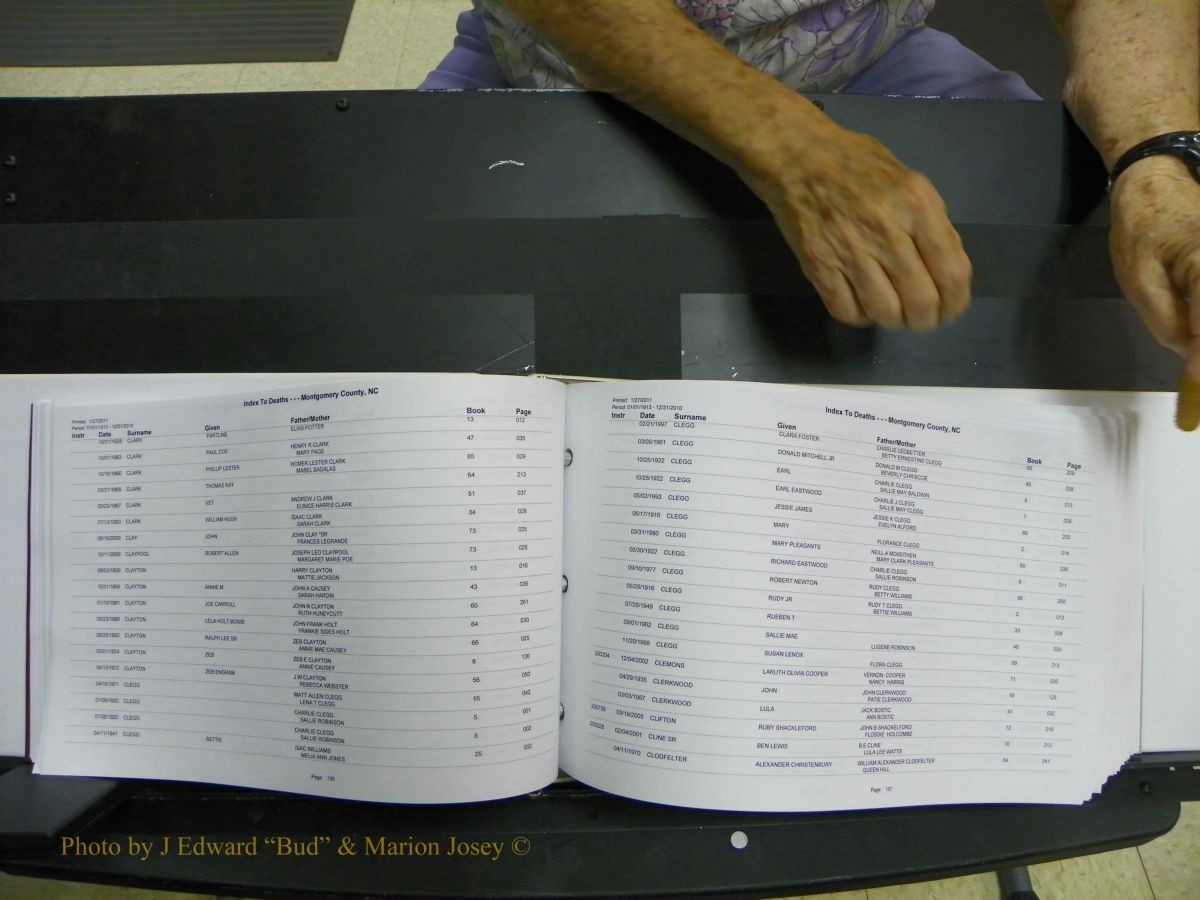 Index To Deaths - - - Montgomery County, NC
Printed: 1/27/2011
Period: 01/01/1913 - 12/31/2010
Instr Date Surname Given Father/Mother Book Page
10/21/1928 CLARK PARTLINE ELIAS POTTER 13 012
10/21/1963 CLARK PAUL COE HENRY R CLARK 47 035
MARY PAGE
CLARK PHILLIP LESTER HOMER LESTER CLARK 65 029
MABEL BADALAS
03/21/1989 CLARK THOMAS RAY 64 213
CLARK VET ANDREW J CLARK 51 037
EUNICE HARRIS CLARK
07/13/1950 CLARK WILLIAM HUGH ISAAC CLARK 34 028
SARAH CLARK
CLAY JOHN JOHN CLAY *SR 73 025
FRANCES LEGRANDE
10/11/2006 CLAYPOOL ROBERT ALLEN JOSEPH LEO CLAYPOOL 73 026
MARGARET MARIE POE
CLAYTON HARRY CLAYTON 13 016
MATTIE JACKSON
10/31/1959 CLAYTON ANNIE M JOHN A CAUSEY 43 036
SARAH HARDIN
01/19/1981 CLAYTON JOE CARROLL JOHN N CLAYTON 60 261
RUTH HUNEYCUTT
09/23/1988 CLAYTON LELA HOLT BOWIE JOHN FRANK HOLT 64 030
FRANKIE SIDES HOLT
CLAYTON RALPH LEE SR ZEB CLAYTON 66 025
ANNIE MAE CAUSEY
02/01/1924 CLAYTON ZEB ZEB E CLAYTON 8 130
ANNIE CAUSEY
05/13/1972 CLAYTON ZEB ENGRAM J W CLAYTON 56 050
REBECCA WEBSTER
04/16/1971 CLEGG MATT ALLEN CLEGG 55 042
LENA T CLEGG
07/09/1920 CLEGG CHARLIE CLEGG 5 001
SALLIE ROBINSON
07/09/1920 CLEGG CHARLIE CLEGG 5 002
SALLIE ROBINSON
04/11/1941 CLEGG BETTIE ISAC WILLIAMS 25 002
MELIA ANN JONES
Page 156
Printed: 1/27/2011
Period: 01/01/1913 - 12/31/2010
Index To Deaths - - - Montgomery County, NC
Instr Date Surname Given Father/Mother Book Page
02/21/1997 CLEGG CLARA FOSTER CHARLIE LEDBETTER 68 209
BETTY ERNESTINE CLEGG
03/05/1961 CLEGG DONALD MITCHELL JR DONALD M CLEGG 45
BEVERLY CHRISCOE
10/25/1922 CLEGG EARL CHARLIE CLEGG 013
SALLIE MAY BALDWIN
10/25/1922 CLEGG EARL EASTWOOD CHARLIE J CLEGG 7 008
SALLIE MAY CLEGG
05/02/1993 CLEGG JESSIE JAMES JESSIE K CLEGG 66 203
EVELYN ALFORD
06/17/1916 CLEGG MARY FLORANCE CLEGG 2 014
03/31/1980 CLEGG MARY PLEASANTS NEILL A MCKEITHEN 60
MARY CLARK PLEASANTS
05/30/1922 CLEGG RICHARD EASTWOOD CHARLIE CLEGG 6 011
SALLIE ROBINSON
09/10/1977 CLEGG ROBERT NEWTON RUDY CLEGG
BETTY WILLIAMS
05/29/1916 CLEGG RUDY JR RUDY T CLEGG 2 013
BETTIE WILLIAMS
07/26/1949 CLEGG RUEBEN T 33 009
09/01/1962 CLEGG SALLIE MAE LUGENE ROBINSON 46
11/20/1999 CLEGG SUSAN LENOX FLORA CLEGG 69 213
200204 12/04/2002 CLEMONS LARUTH OLIVIA COOPER VERNON COOPER 71 030
NANCY HARRIS
04/29/1935 CLERKWOOD JOHN JOHN CLERKWOOD 19 125
PATIE CLERKWOOD
03/03/1957 CLERKWOOD LULA JACK BOSTIC 41 032
ANN BOSTIC
03/19/2005 CLIFTON RUBY SHACKLEFORD JOHN B SHACKELFORD 72 219
FLOSSIE HOLCOMBE
02/04/2001 CLINE SR BEN LEWIS B E CLINE 70 213
LULA LEE WATTS
04/11/1970 CLODFELTER ALEXANDER CHRISTENBURY WILLIAM ALEXANDER CLODFELTER 54 041
QUEEN HILL
Page 157
Photo by J Edward “Bud” & Marion Josey ©